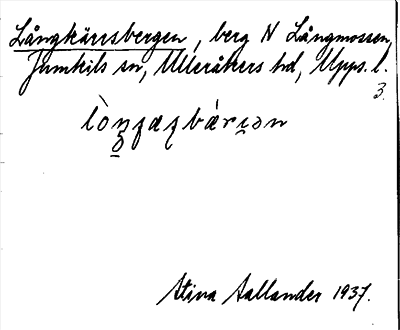 Långkärrsbergen, berg N Långmossen,
Jumkils sn, Ulleråkers hd, Upps. l.
3.
Stina Aallander 1937.